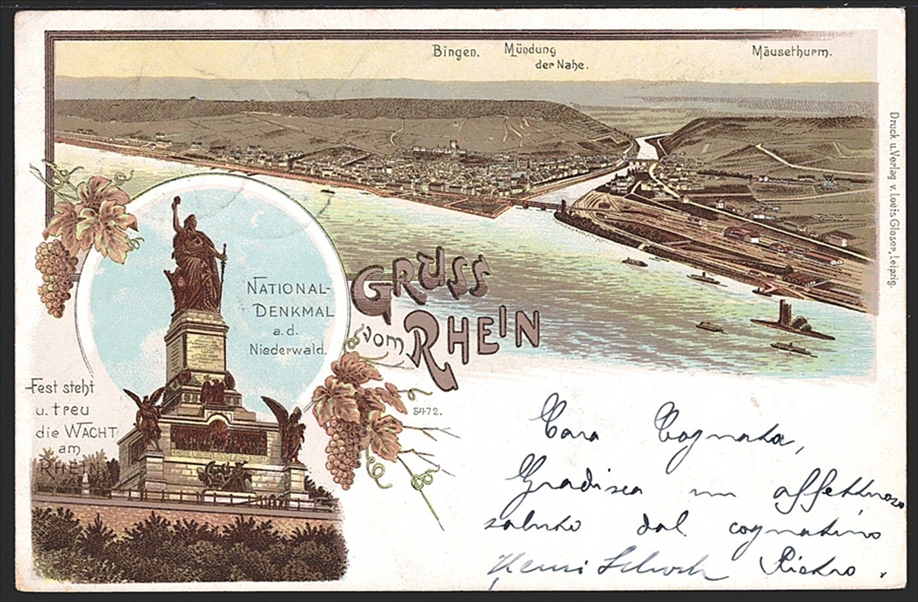 Bingen. Mündung Mäusethurm.
der Nahe.
Druck u. Verlag v. Louis Glaser, Leipzig.
NATIONAL-
DENKMAL
a. d.
Niederwald.
GRUSS
vom RHEIN
Fest steht
u. treu
die WACHT
am
RHEIN.
5472.
Cara Cognata,
Gradisca un affettuoso
saluto dal cognatino
Pietro.